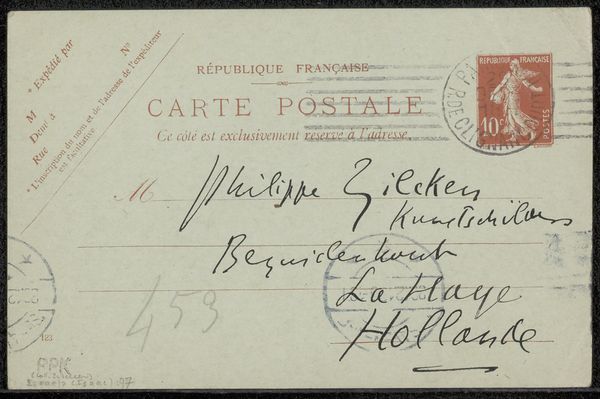 * Expédié par
N°
M
Demt à
Rue
* L'inscription du nom et de l'adresse de l'expéditeur
est facultative
RÉPUBLIQUE FRANÇAISE
CARTE POSTALE
Ce côté est exclusivement réservé à l'adresse.
RÉPUBLIQUE FRANÇAISE
10c
POSTES
M Philippe Zilcken
Kunstschilder
Bezuidenhout
La Haye
Hollande
453
123
RPK